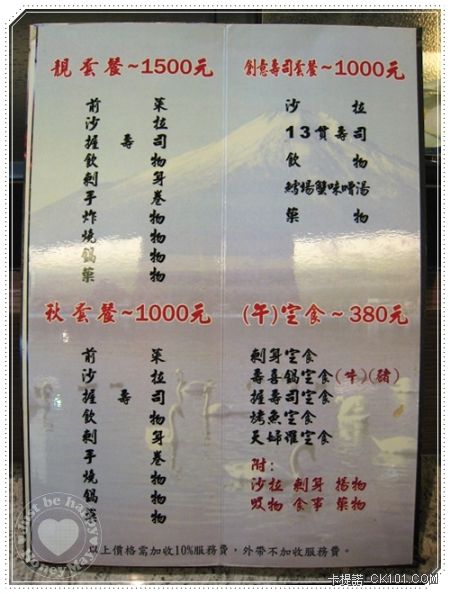 靚套餐~1500元
前菜
沙拉
握壽司
飲物
刺身
手卷
炸物
燒物
鍋物
菓物
創意壽司套餐~1000元
沙拉
13貫壽司
飲物
鱈場蟹味噌湯
菓物
秋套餐~1000元
前菜
沙拉
握壽司
飲物
刺身
手卷
燒物
鍋物
菓物
(午)定食~380元
刺身定食
壽喜鍋定食(牛)(豬)
握壽司定食
烤魚定食
天婦羅定食
附:
沙拉 刺身 揚物
吸物 食事 菓物
以上價格需加收10%服務費,外帶不加收服務費。
just be happy
HoneyMay
卡提諾 CK101.COM